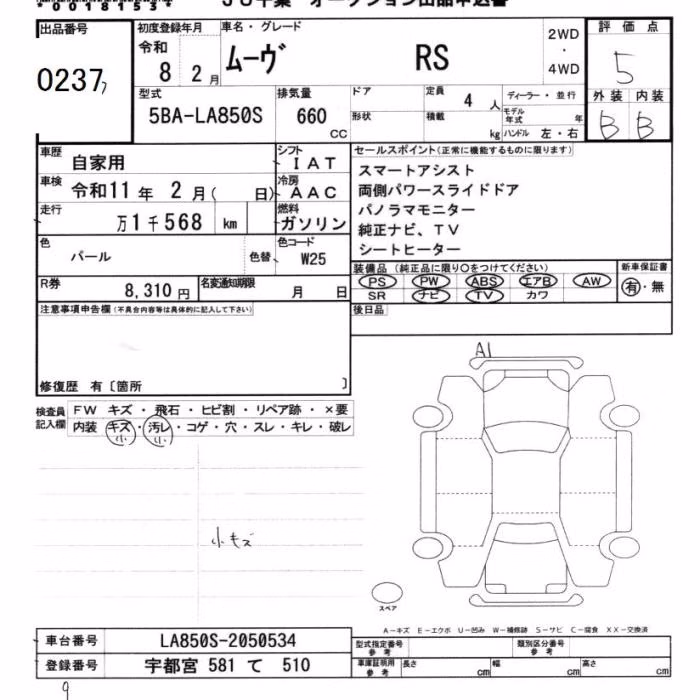 00181534
JU千葉 オークション出品申込書
出品番号
0237
初度登録年月
令和
8 2月
車名・グレード
ムーヴ RS
2WD
・
4WD
評価点
5
外装 内装
B B
型式
5BA-LA850S
排気量
660
CC
ドア
形状
定員
4人
積載
kg
ディーラー・並行
モデル年式 年
ハンドル 左・右
車歴
自家用
シフト
IAT
車検
令和11年 2月( 日)
冷房
AAC
走行
万1千568 km
燃料
ガソリン
色
パール
色替
色コード
W25
R券
8,310円
名変通知期限
月 日
セールスポイント(正常に機能するものに限ります)
スマートアシスト
両側パワースライドドア
パノラマモニター
純正ナビ、TV
シートヒーター
装備品 (純正品に限り〇をつけてください)
PS PW ABS エアB AW
SR ナビ TV カワ
新車保証書
有・無
後日品
注意事項申告欄(不具合内容等は具体的に記入して下さい)
修復歴 有〔箇所 〕
検査員記入欄
FW キズ・飛石・ヒビ割・リペア跡・×要
内装 キズ・汚レ・コゲ・穴・スレ・キレ・破レ
小 小
小キズ
A1
スペア
A-キズ E-エクボ U-凹み W-補修跡 S-サビ C-腐食 XX-交換済
車台番号
LA850S-2050534
登録番号
宇都宮 581 て 510
型式指定番号
参考
類別区分番号
参考
車庫証明用
参考
長さ cm 幅 cm 高さ cm
9